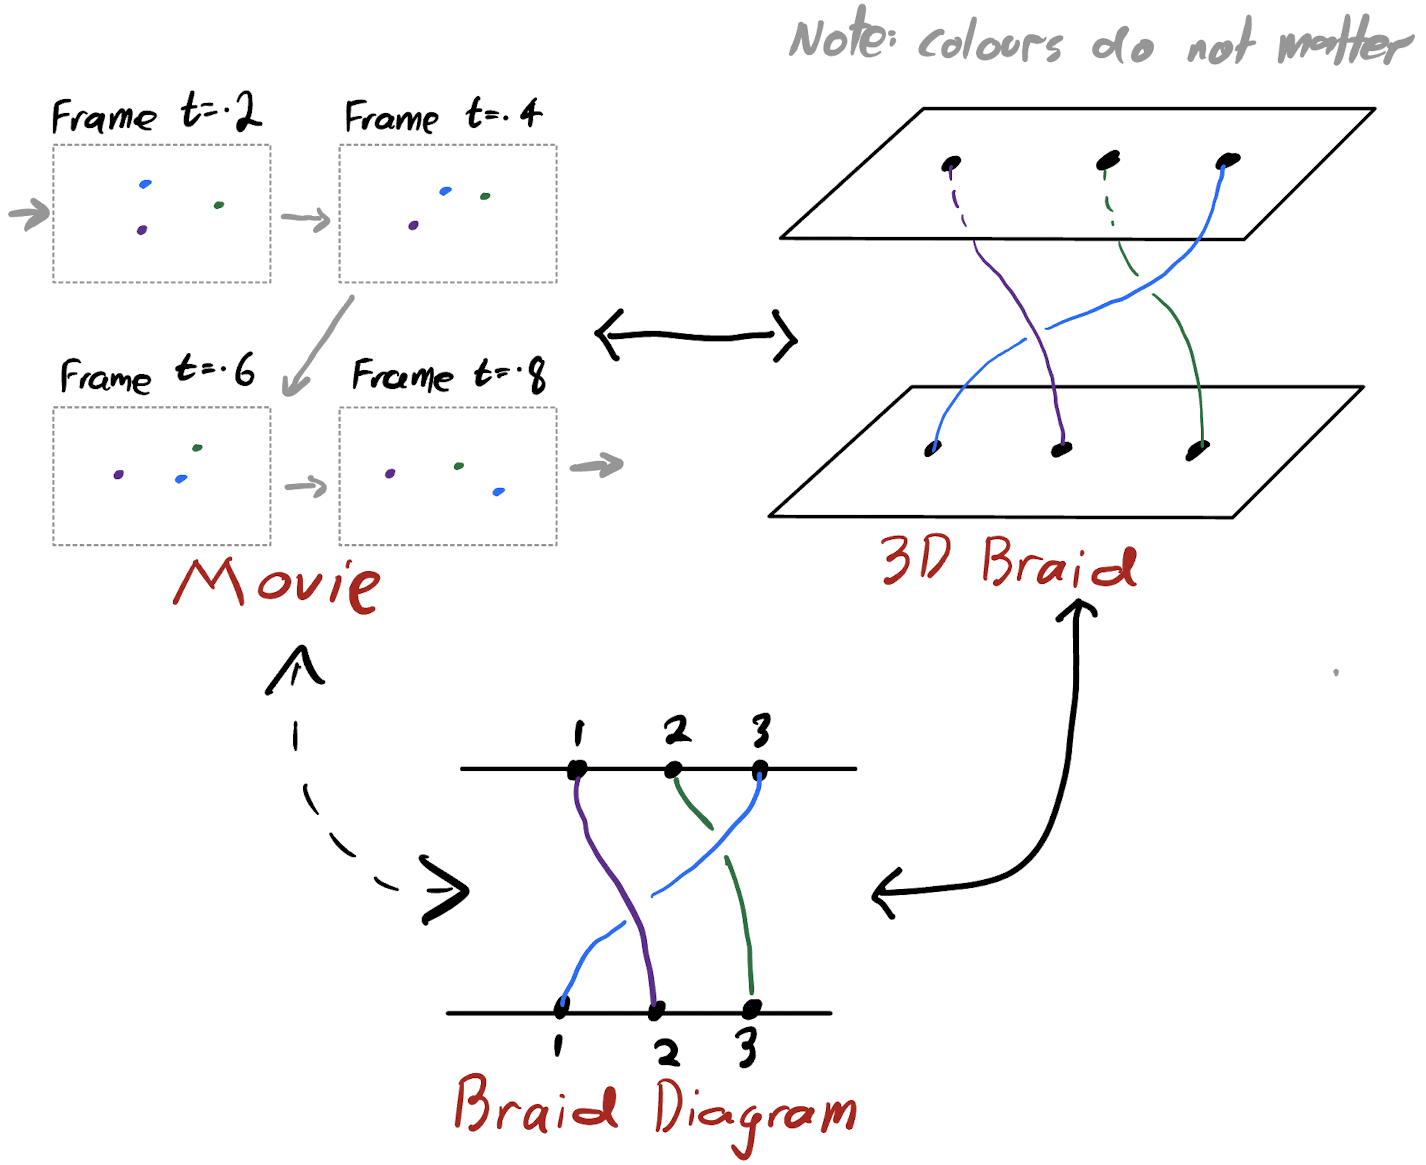 Note: colours do not matter
Frame t=.2
Frame t=.4
Frame t=.6
Frame t=.8
Movie
3D Braid
1 2 3
1 2 3
Braid Diagram